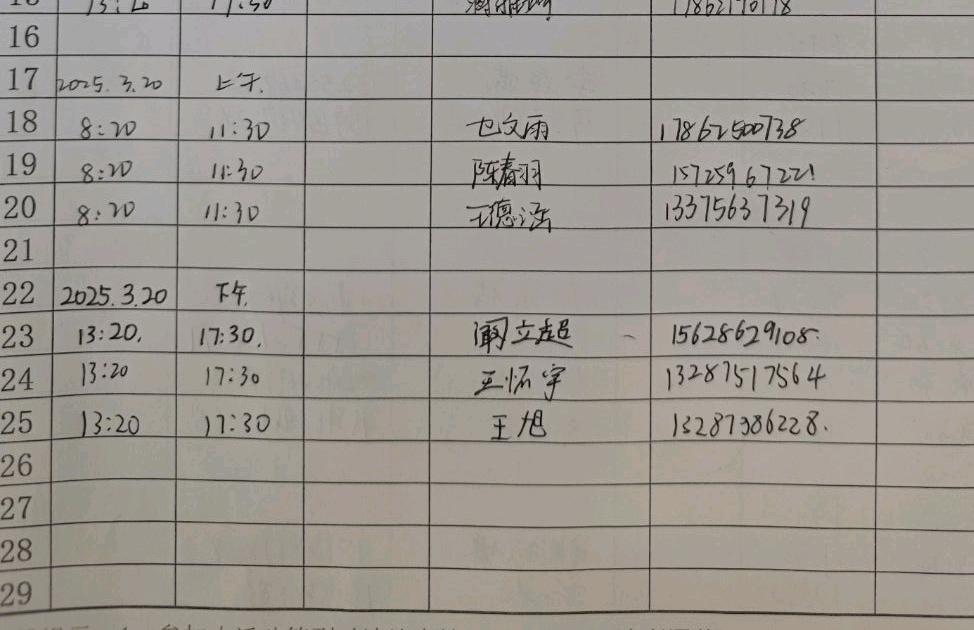 16
17 2025.3.20 上午.
18 8:20 11:30 文雨 17862500738
19 8:20 11:30 陈春羽 15725967221
20 8:20 11:30 王德涵 13375637319
21
22 2025.3.20 下午.
23 13:20. 17:30. 阚立超 15628629108.
24 13:20 17:30 王怀宇 13287517564
25 13:20 17:30 王旭 13287386228.
26
27
28
29